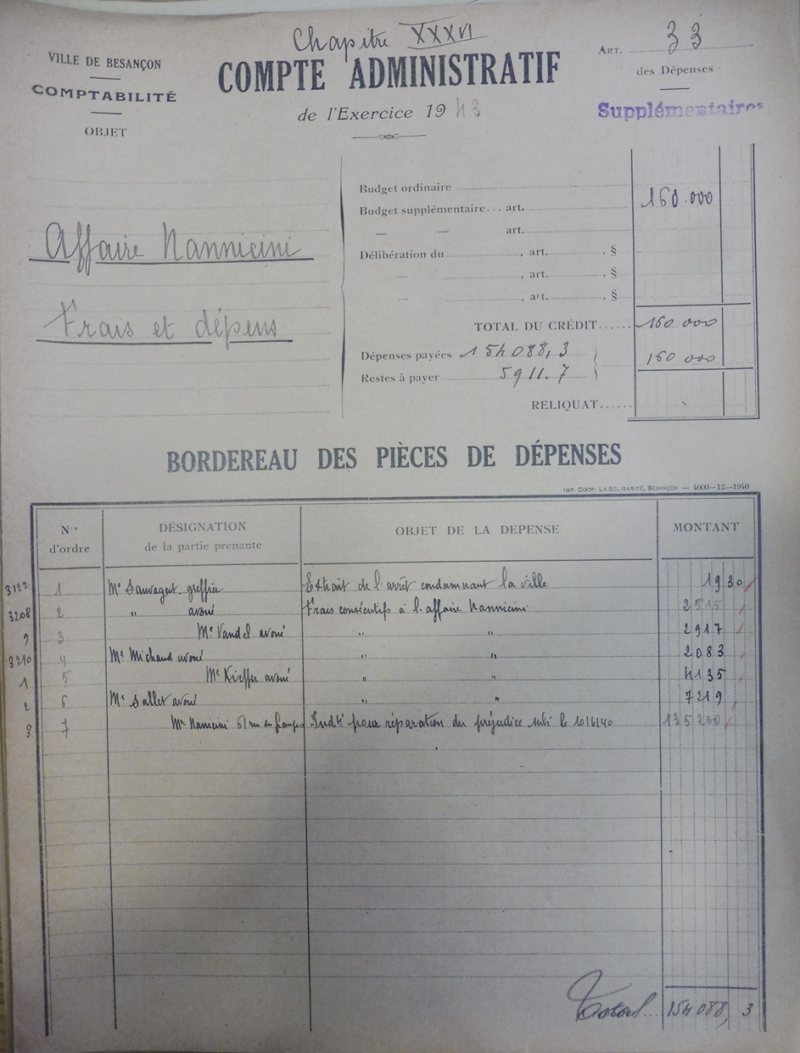 Chapitre XXXVI
VILLE DE BESANÇON
COMPTABILITÉ
OBJET
COMPTE ADMINISTRATIF
de l'Exercice 19 43
ART. 33
des Dépenses
Supplémentaires
Affaire Nannicini
Frais et dépens
Budget ordinaire 160.000
Budget supplémentaire... art.
— — art.
Délibération du , art. , §
— , art. , §
— , art. , §
TOTAL DU CRÉDIT...... 160 000
Dépenses payées 154088,3 160 000
Restes à payer 5911.7
RELIQUAT...... "
BORDEREAU DES PIÈCES DE DÉPENSES
IMP. COOP. LA SOLIDARITÉ, BESANÇON — 4000-12-1940
Nos d'ordre
DÉSIGNATION de la partie prenante
OBJET DE LA DEPENSE
MONTANT
3122 1 Me Sauvagent greffier Extrait de l'arrêt condamnant la ville 19 30
3208 2 " avoué Frais consécutifs à l'affaire Nannicini 2515
9 3 Me Vandel avoué " " 2917
3210 4 Me Michaud avoué " " 2083
1 5 Me Kieffer avoué " " 4135
2 6 Me Sallet avoué " " 7219
3 7 61 rue de Indté pour réparation du préjudice subi le 10/6/40 135200
Total 154 088, 3